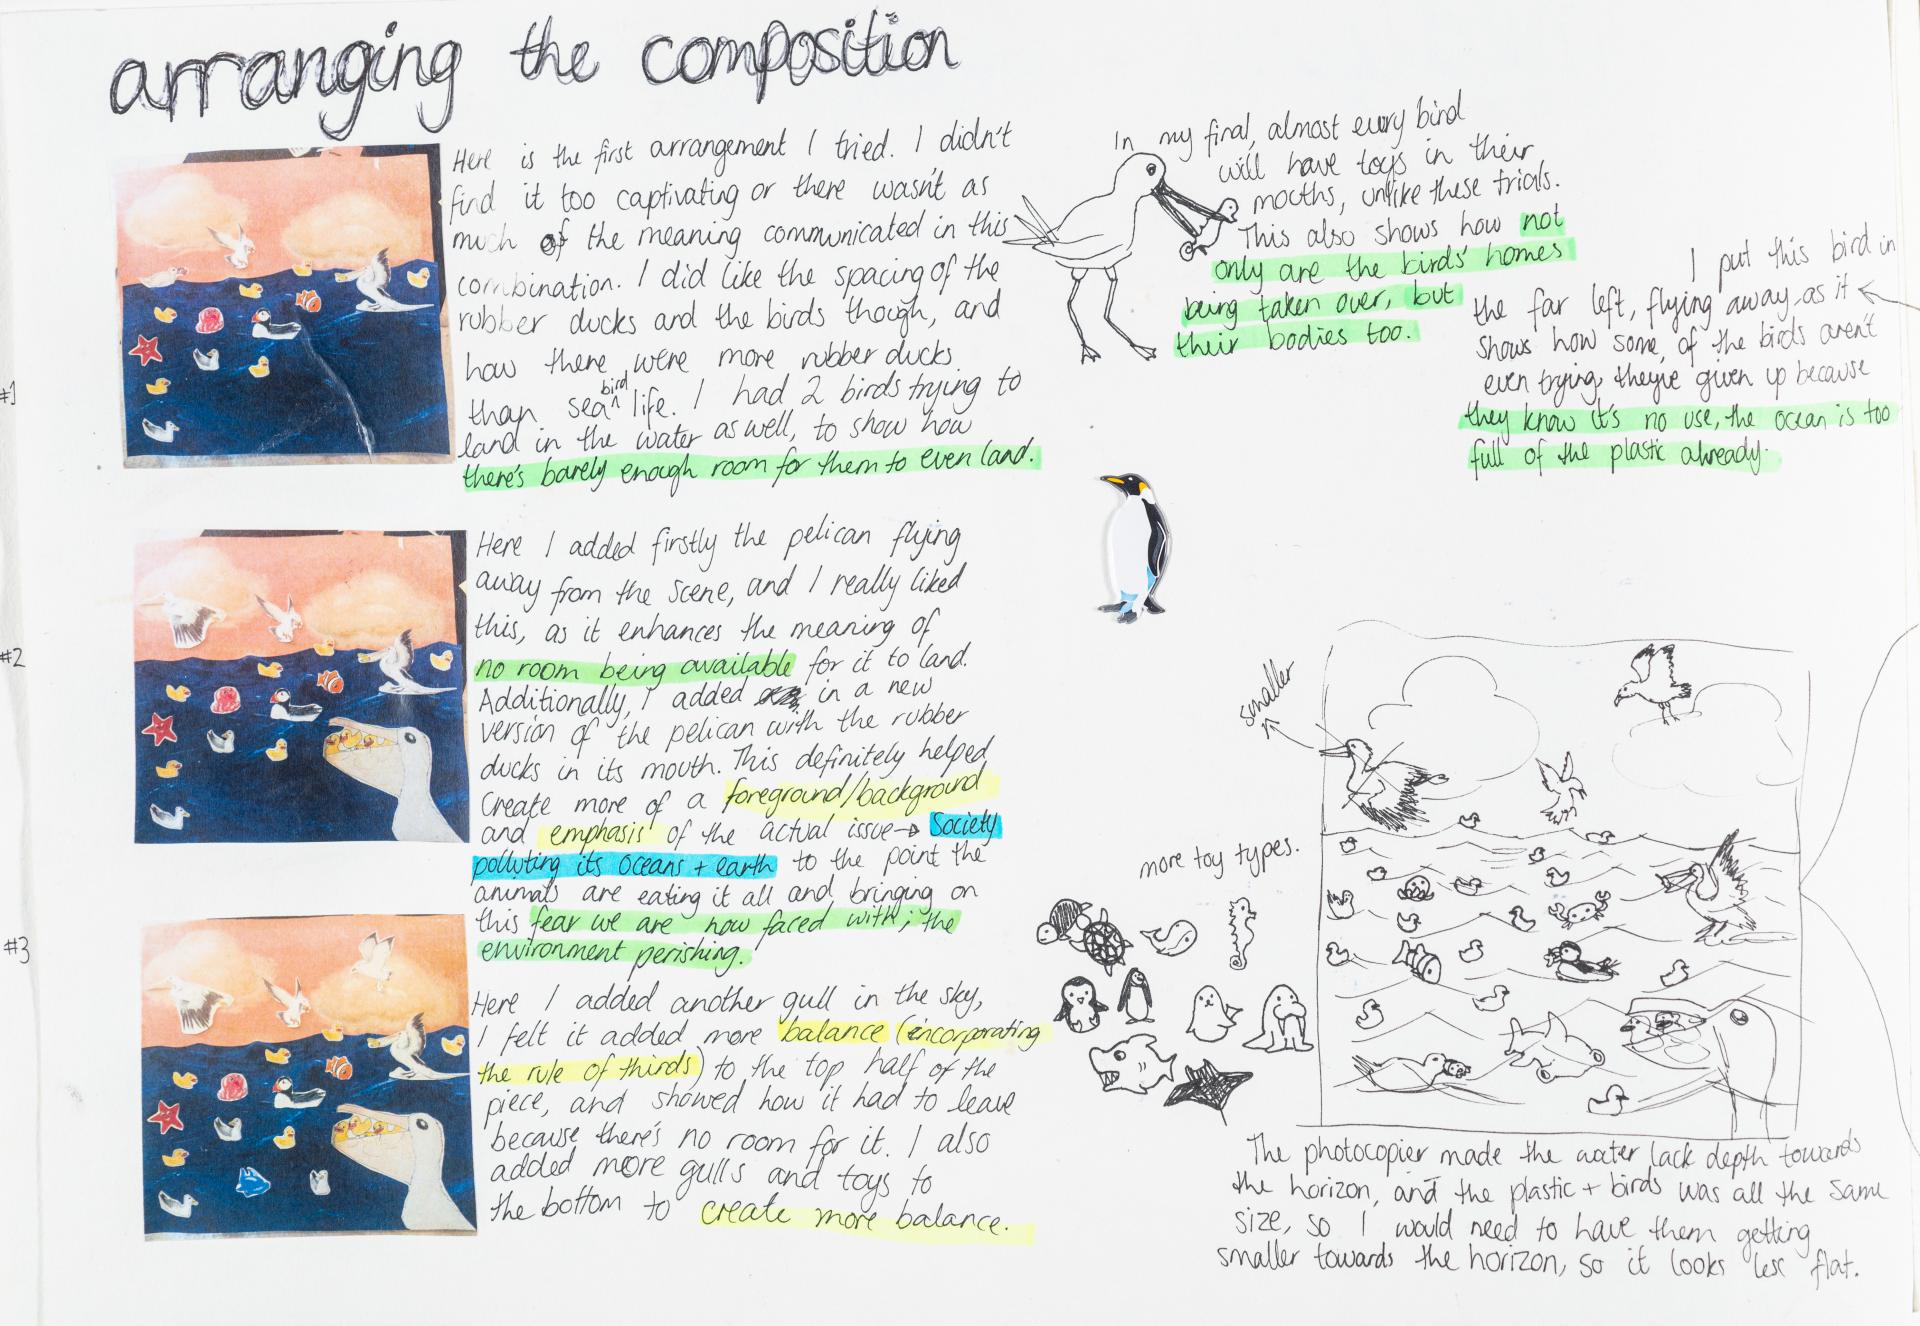 arranging the composition
#1
Here is the first arrangement I tried. I didn't
find it too captivating or there wasn't as
much of the meaning communicated in this
combination. I did like the spacing of the
rubber ducks and the birds though, and
how there were more rubber ducks
than sea bird life. I had 2 birds trying to
land in the water as well, to show how
there's barely enough room for them to even land.
#2
Here I added firstly the pelican flying
away from the scene, and I really liked
this, as it enhances the meaning of
no room being available for it to land.
Additionally, I added in a new
version of the pelican with the rubber
ducks in its mouth. This definitely helped
create more of a foreground/background
and emphasis of the actual issue → Society
polluting its oceans + earth to the point the
animals are eating it all and bringing on
this fear we are now faced with; the
environment perishing.
#3
Here I added another gull in the sky,
I felt it added more balance (incorporating
the rule of thirds) to the top half of the
piece, and showed how it had to leave
because there's no room for it. I also
added more gulls and toys to
the bottom to create more balance.
In my final, almost every bird
will have toys in their
mouths, unlike these trials.
This also shows how not
only are the birds' homes
being taken over, but
their bodies too.
I put this bird in
the far left, flying away as it
shows how some of the birds aren't
even trying, they've given up because
they know it's no use, the ocean is too
full of the plastic already.
smaller
more toy types.
The photocopier made the water lack depth towards
the horizon, and the plastic + birds was all the same
size, so I would need to have them getting
smaller towards the horizon, so it looks less flat.